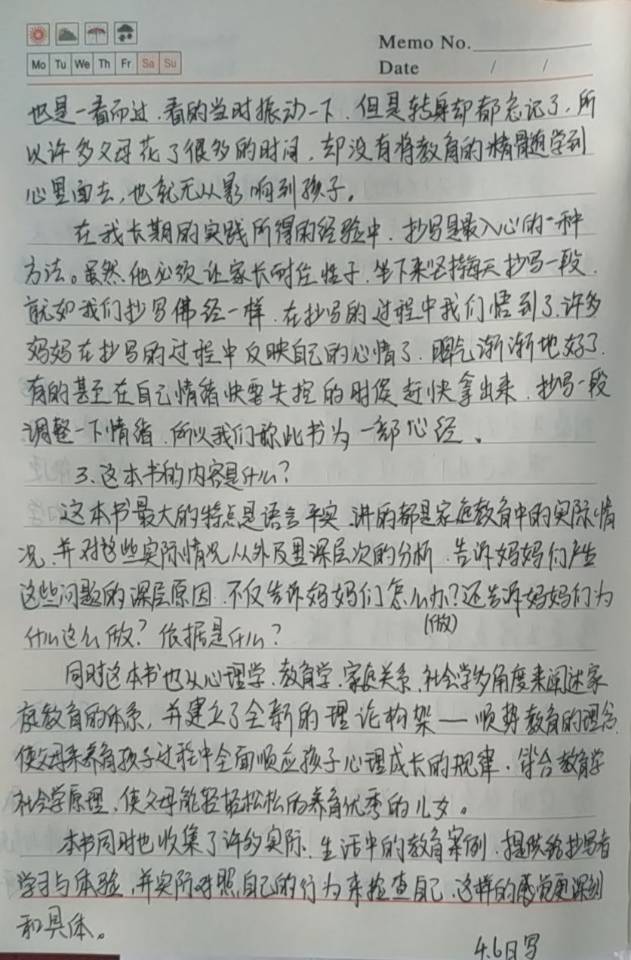 Memo No.
Mo Tu We Th Fr Sa Su
Date / /
也是一看而过.看的当时振动一下.但是转身却都忘记了.所
以许多父母花了很多的时间,却没有将教育的精髓学到
心里面去,也就无从影响到孩子。
在我长期的实践所得的经验中.抄写是最入心的一种
方法。虽然他必须让家长耐住性子.坐下来坚持每天抄写一段.
就如我们抄写佛经一样.在抄写的过程中我们悟到了.许多
妈妈在抄写的过程中反映自己的心情了.脾气渐渐地好了.
有的甚至在自己情绪快要失控的时候赶快拿出来.抄写一段
调整一下情绪.所以我们称此书为一部心经.
3.这本书的内容是什么?
这本书最大的特点是语言平实.讲的都是家庭教育中的实际情
况.并对这些实际情况从外及里深层次的分析.告诉妈妈们产生
这些问题的深层原因.不仅告诉妈妈们怎么办?还告诉妈妈们为
(做)
什么这么做?依据是什么?
同时这本书也从心理学.教育学.家庭关系.社会学多角度来阐述家
庭教育的体系,并建立了全新的理论构架——顺势教育的理念.
使父母来养育孩子过程中全面顺应孩子心理成长的规律.符合教育学
社会学原理.使父母能轻轻松松的养育优秀的儿女。
本书同时也收集了许多实际.生活中的教育案例.提供给抄写者
学习与体验.并实际对照自己的行为来检查自己.这样的感觉更深刻
和具体。
4.6日写